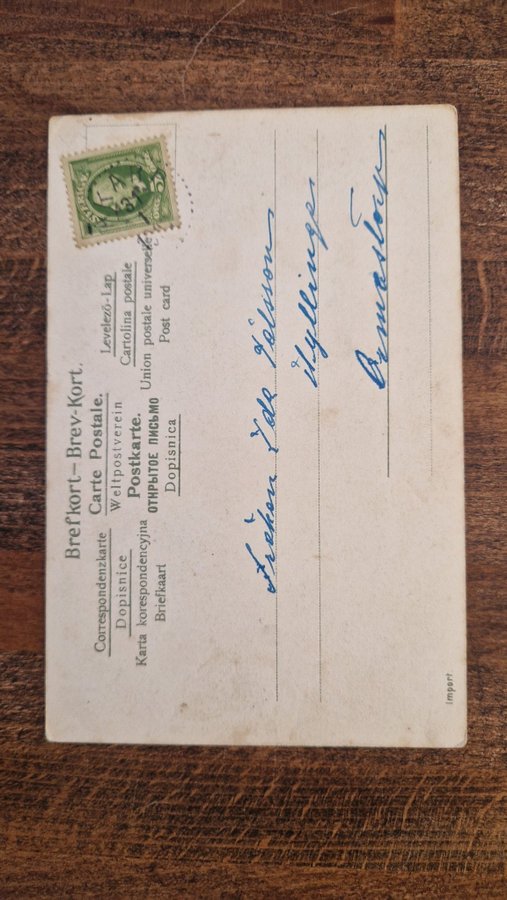 Brefkort – Brev-Kort.
Correspondenzkarte
Carte Postale.
Levelező-Lap
Dopisnice
Weltpostverein
Cartolina postale
Karta korespondencyjna
Postkarte.
Union postale universelle
Briefkaart
ОТКРЫТОЕ ПИСЬМО
Post card
Dopisnica
Fröken Ida
Ormastorp
Import